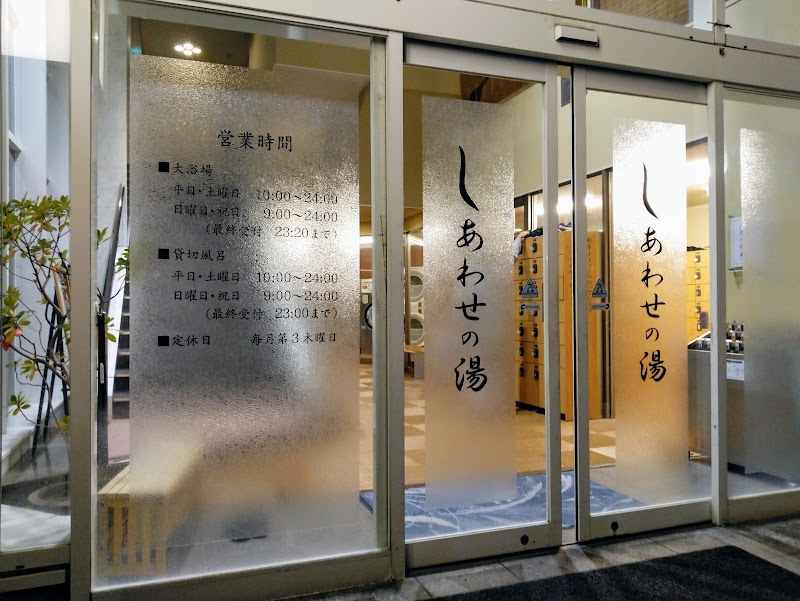 営業時間
■大浴場
平日・土曜日 10:00～24:00
日曜日・祝日 9:00～24:00
(最終受付 23:20まで)
■貸切風呂
平日・土曜日 10:00～24:00
日曜日・祝日 9:00～24:00
(最終受付 23:00まで)
■定休日 毎月第3木曜日
しあわせの湯
しあわせの湯